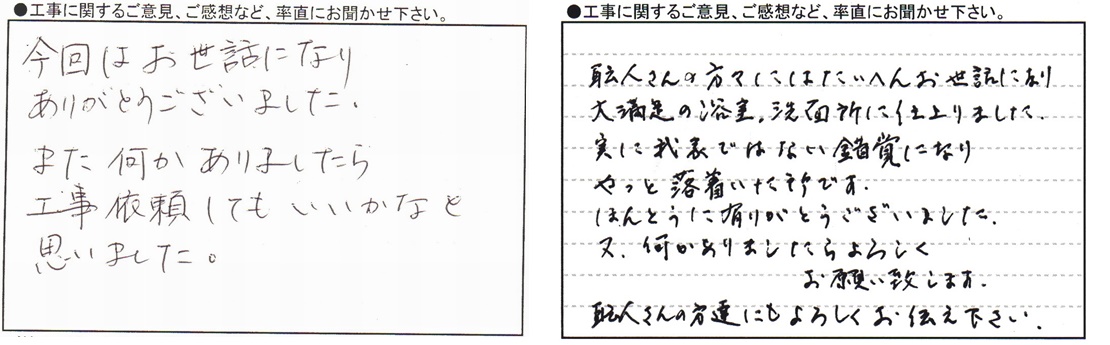 ●工事に関するご意見、ご感想など、率直にお聞かせ下さい。
今回はお世話になり
ありがとうございました.
また何かありましたら
工事依頼してもいいかなと
思いました。
●工事に関するご意見、ご感想など、率直にお聞かせ下さい。
職人さんの方々にはたいへんお世話になり
大満足の浴室,洗面所に仕上りました.
実に我家ではない錯覚になり
やっと落着いた所です.
ほんとうに有りがとうございました.
又.何かありましたらよろしく
お願い致します.
職人さんの方達にもよろしくお伝え下さい.